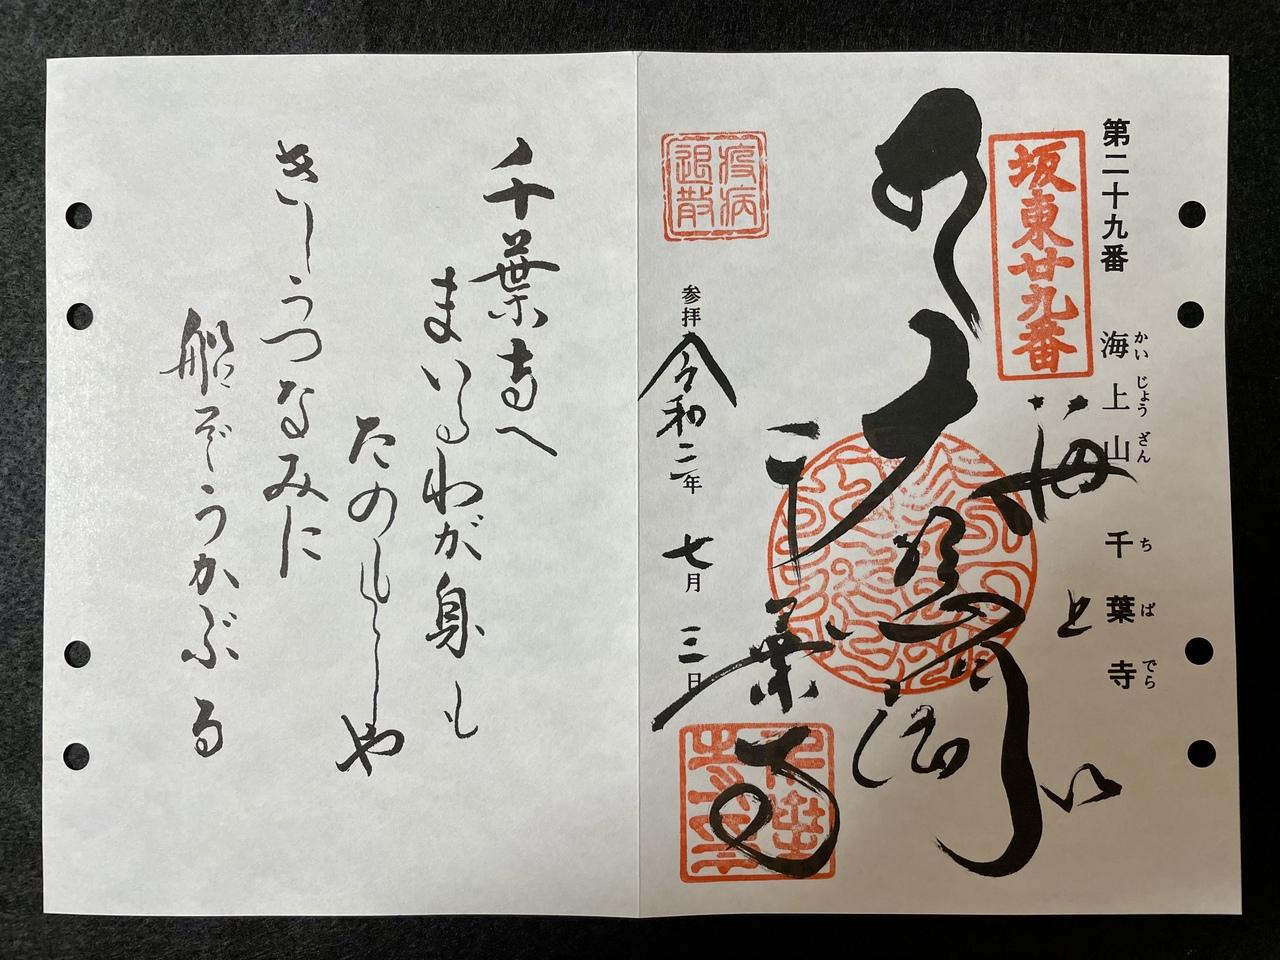 第二十九番 海上山 千葉寺
かいじょうざん ちばでら
坂東廿九番
千葉寺
疫病退散
参拝 令和二年 七月 三日
千葉寺へ
まいるわが身も
たのもしや
きしうつなみに
船ぞうかぶる